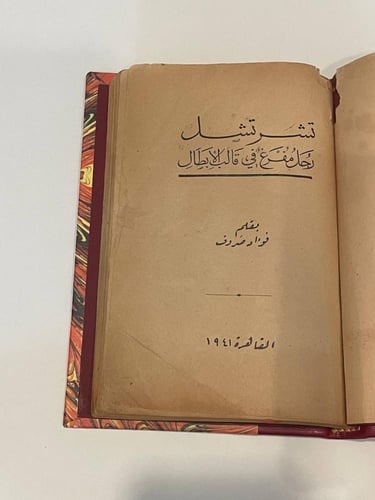 تشرتشل
رجل مُفرغ في قالب الأبطال
بقلم
فؤاد صروف
القاهرة ١٩٤١